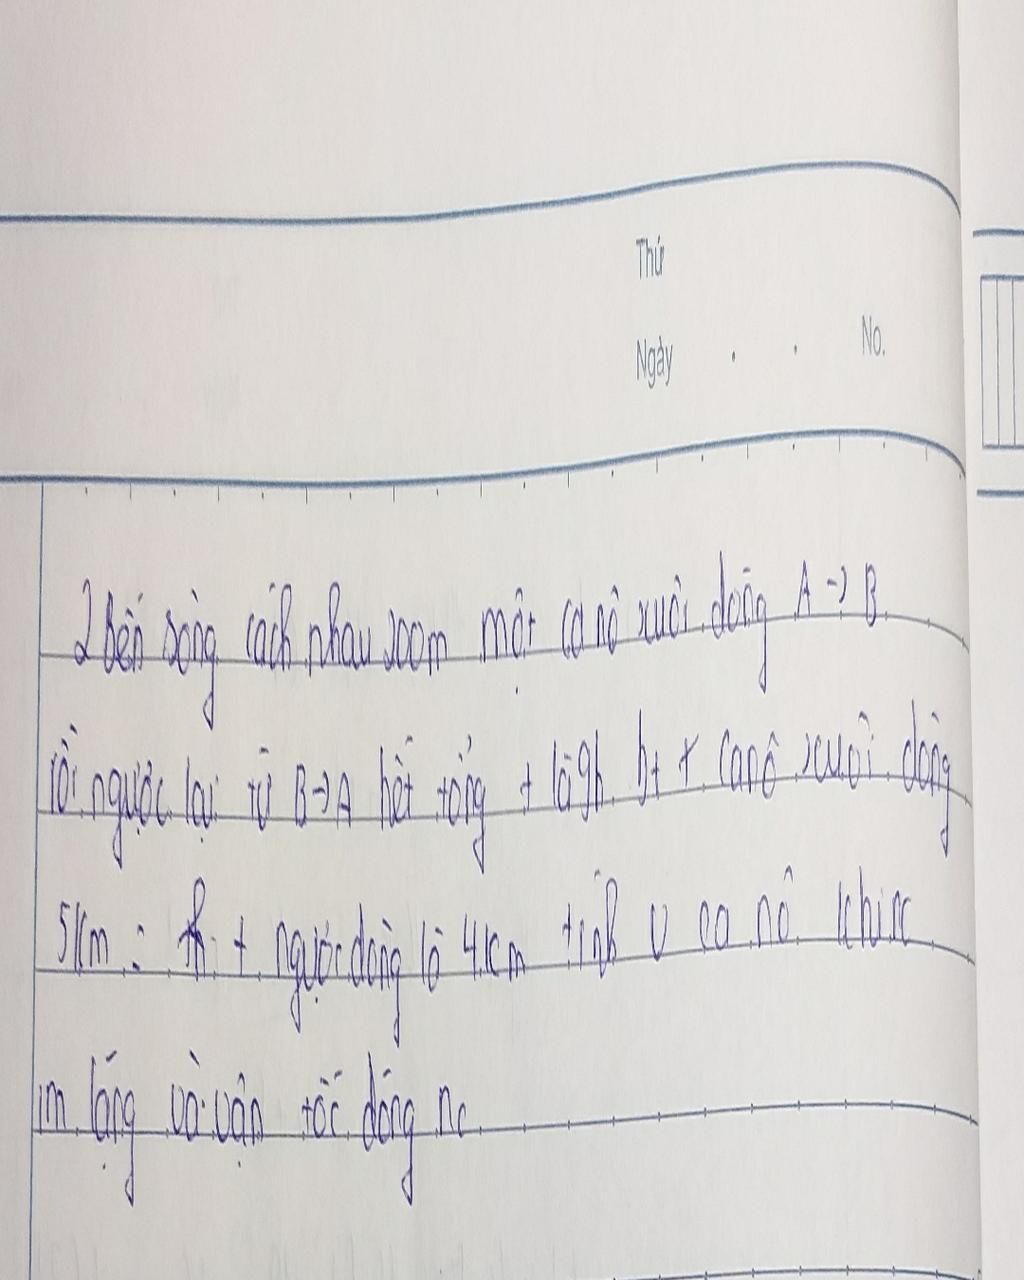 Thứ
Ngày . . No.
2 bến sông cách nhau 200m một ca nô xuôi dòng A -> B
rồi ngược lại từ B->A hết tổng t là 9h bt t canô xuôi dòng
5km = t ngược dòng là 4km tính v ca nô khi nc
im lặng và vận tốc dóng nc